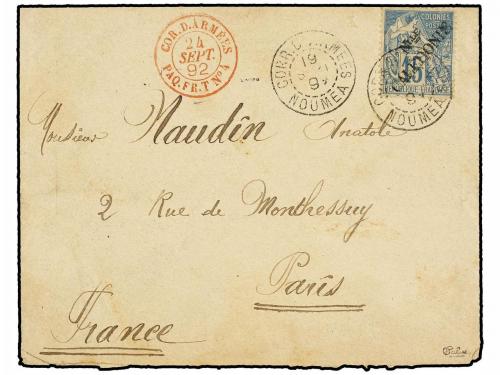 COR. D. ARMÉES
24
SEPT.
92
PAQ. FR. T Nº 4
CORR. D. ARMÉES
19
9
NOUMEA
COLONIES
POSTES
Nlle
CALEDONIE
15
CORR
9
NOUMEA
Monsieur Naudin Anatole
2 Rue de Monthessuy
Paris
France